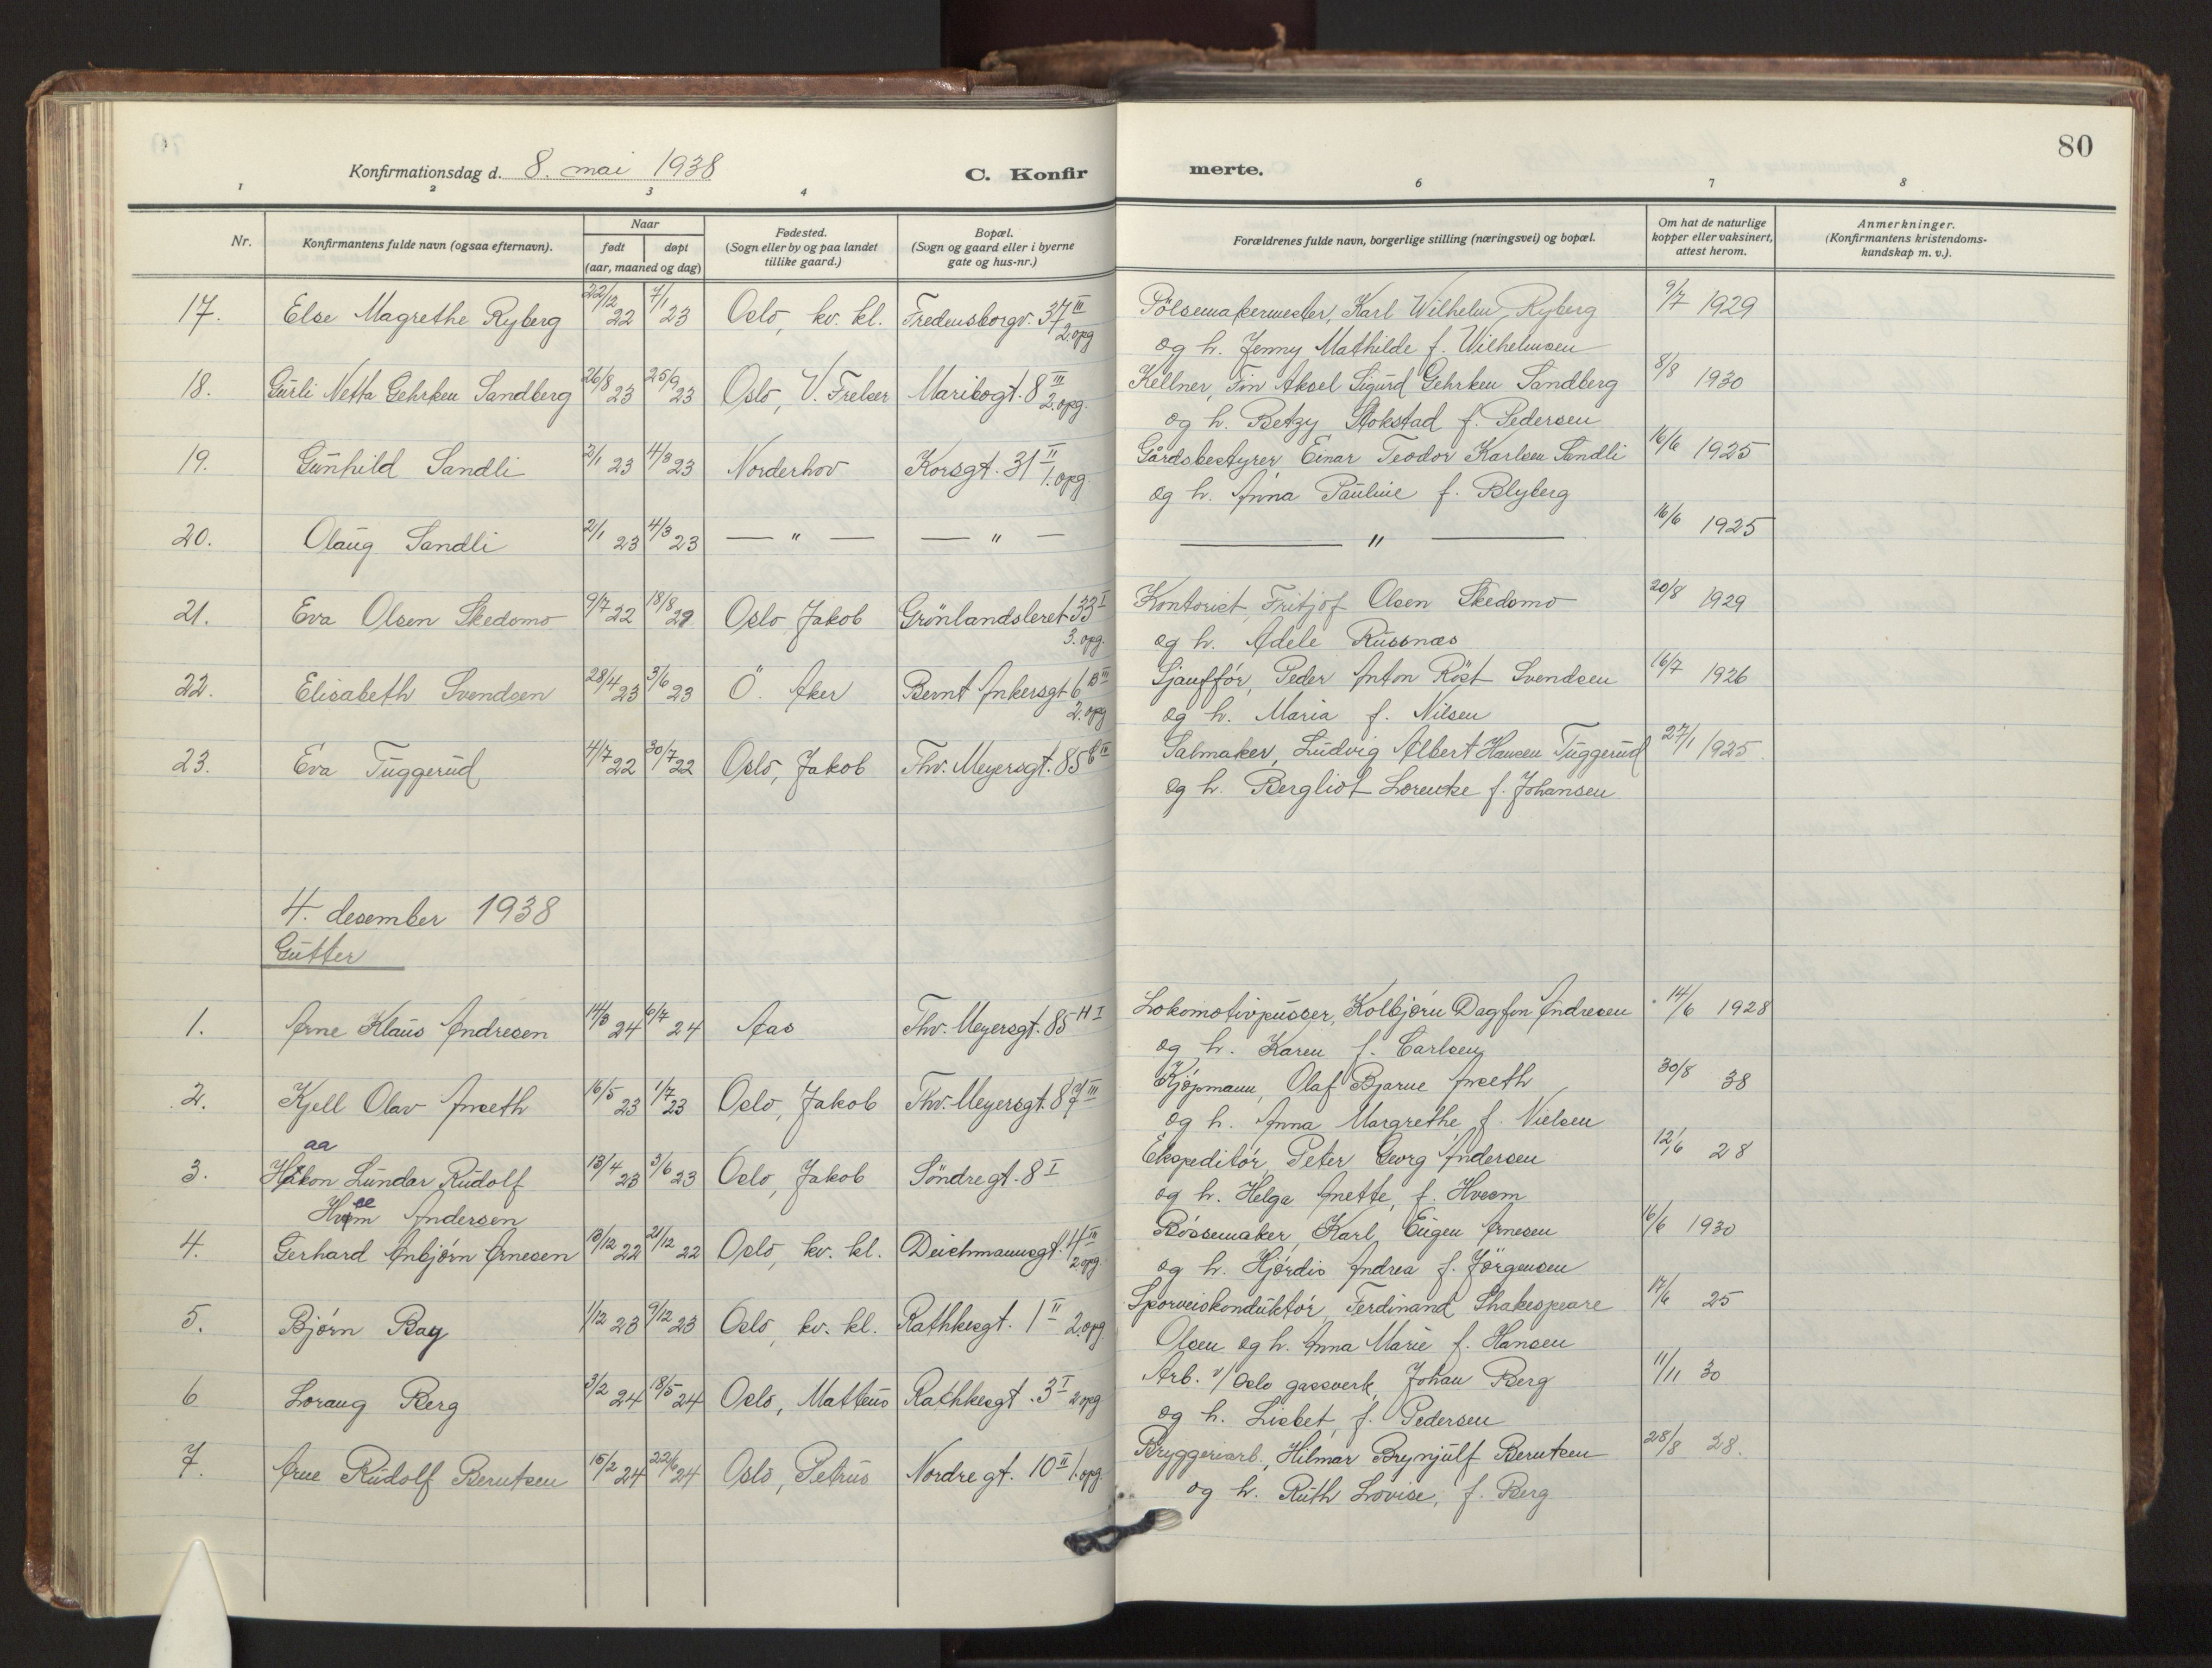 80
Konfirmationsdag d. 8. mai 1938
C. Konfirmerte.
1 2 3 4 6 7 8
Nr.
Konfirmantens fulde navn (ogsaa efternavn).
Naar
født døpt
(aar, maaned og dag)
Fødested.
(Sogn eller by og paa landet
tillike gaard.)
Bopæl.
(Sogn og gaard eller i byerne
gate og hus-nr.)
Forældrenes fulde navn, borgerlige stilling (næringsvei) og bopæl.
Om hat de naturlige
kopper eller vaksinert,
attest herom.
Anmerkninger.
(Konfirmantens kristendoms-
kundskap m. v.).
17. Else Magrethe Ryberg 22/12 22 7/1 23 Oslo, kv. kl. Fredensborgv. 37 III 2.opg Pölsemakermester, Karl Wilhelm Ryberg 9/7 1929
og h. Jenny Mathilde f. Wilhelmsen
18. Gurli Netta Gehrken Sandberg 26/8 23 25/9 23 Oslo, V. Frelser Maribogt. 8 III 2.opg. Kellner, Fin Aksel Sigurd Gehrken Sandberg 8/8 1930
og h. Betzy Stokstad f. Pedersen
19. Gunhild Sandli 2/1 23 4/3 23 Norderhov Korsgt. 31 II 1.opg. Gårdsbestyrer Einar Teodor Karlsen Sandli 16/6 1925
og h. Anna Pauline f. Blyberg
20. Olaug Sandli 2/1 23 4/3 23 — " — — " — — " — 16/6 1925
21. Eva Olsen Skedsmo 9/7 22 18/8 29 Oslo, Jakob Grönlandsleret 33 I 3.opg. Kontorist, Fritjof Olsen Skedsmo 20/8 1929
og h. Adele Russnæs
22. Elisabeth Svendsen 28/4 23 3/6 23 Ö. Aker Bernt Ankersgt 6 B III 2.opg Sjauffór, Peder Anton Röst Svendsen 16/7 1926
og h. Maria f. Nilsen
23. Eva Tuggerud 4/7 22 30/7 22 Oslo, Jakob Thv. Meyersgt. 85 Salmaker, Ludvig Albert Hansen Tuggerud 27/1 1925.
og h. Bergliot Lorentse f. Johansen
4. desember 1938
Gutter
1. Arne Klaus Andresen 14/3 24 6/7 24 Aas Thv. Meyersgt. 85 H I Lokomotivpusser, Kolbjørn Dagfin Andresen 14/6 1928
og h. Karen f. Carlsen
2. Kjell Olav Anseth 16/5 23 1/7 23 Oslo, Jakob Thv. Meyersgt. 87 III Kjøpmann, Olaf Bjarne Anseth 30/8 38
og h. Anna Margrethe f. Nielsen
aa
3. Håkon Lundar Rudolf 13/4 23 3/6 23 Oslo, Jakob Söndregt. 8 I Ekspeditór, Peter Georg Andersen 12/6 28
Hvem Andersen og h. Helga Anette, f. Hveem
4. Gerhard Anbjórn Arnesen 13/12 22 21/12 22 Oslo, kv. kl. Deichmannsgt. 4 III 2.opg. Bóssemaker, Karl Eugen Arnesen 16/6 1930
og h. Hjórdis Andrea f. Jörgensen
5. Bjórn Bay 1/12 23 9/12 23 Oslo, kv. kl. Rathkesgt. 1 II 2.opg Sporveiskonduktór, Ferdinand Shakespeare 17/6 25
Olsen og h. Anna Marie f. Hansen
6 Loraug Berg 3/2 24 18/5 24 Oslo, Matteus Rathkesgt. 3 I 2.opg Arb. v/ Oslo gassverk, Johan Berg 11/11 30
og h. Lisbet, f. Pedersen
7. Arne Rudolf Berntsen 15/2 24 22/6 24 Oslo, Petrus Nordregt. 10 II 1.opg. Bryggeriarb., Hilmar Brynjulf Berntsen 28/8 28.
og h. Ruth Lovise, f. Berg